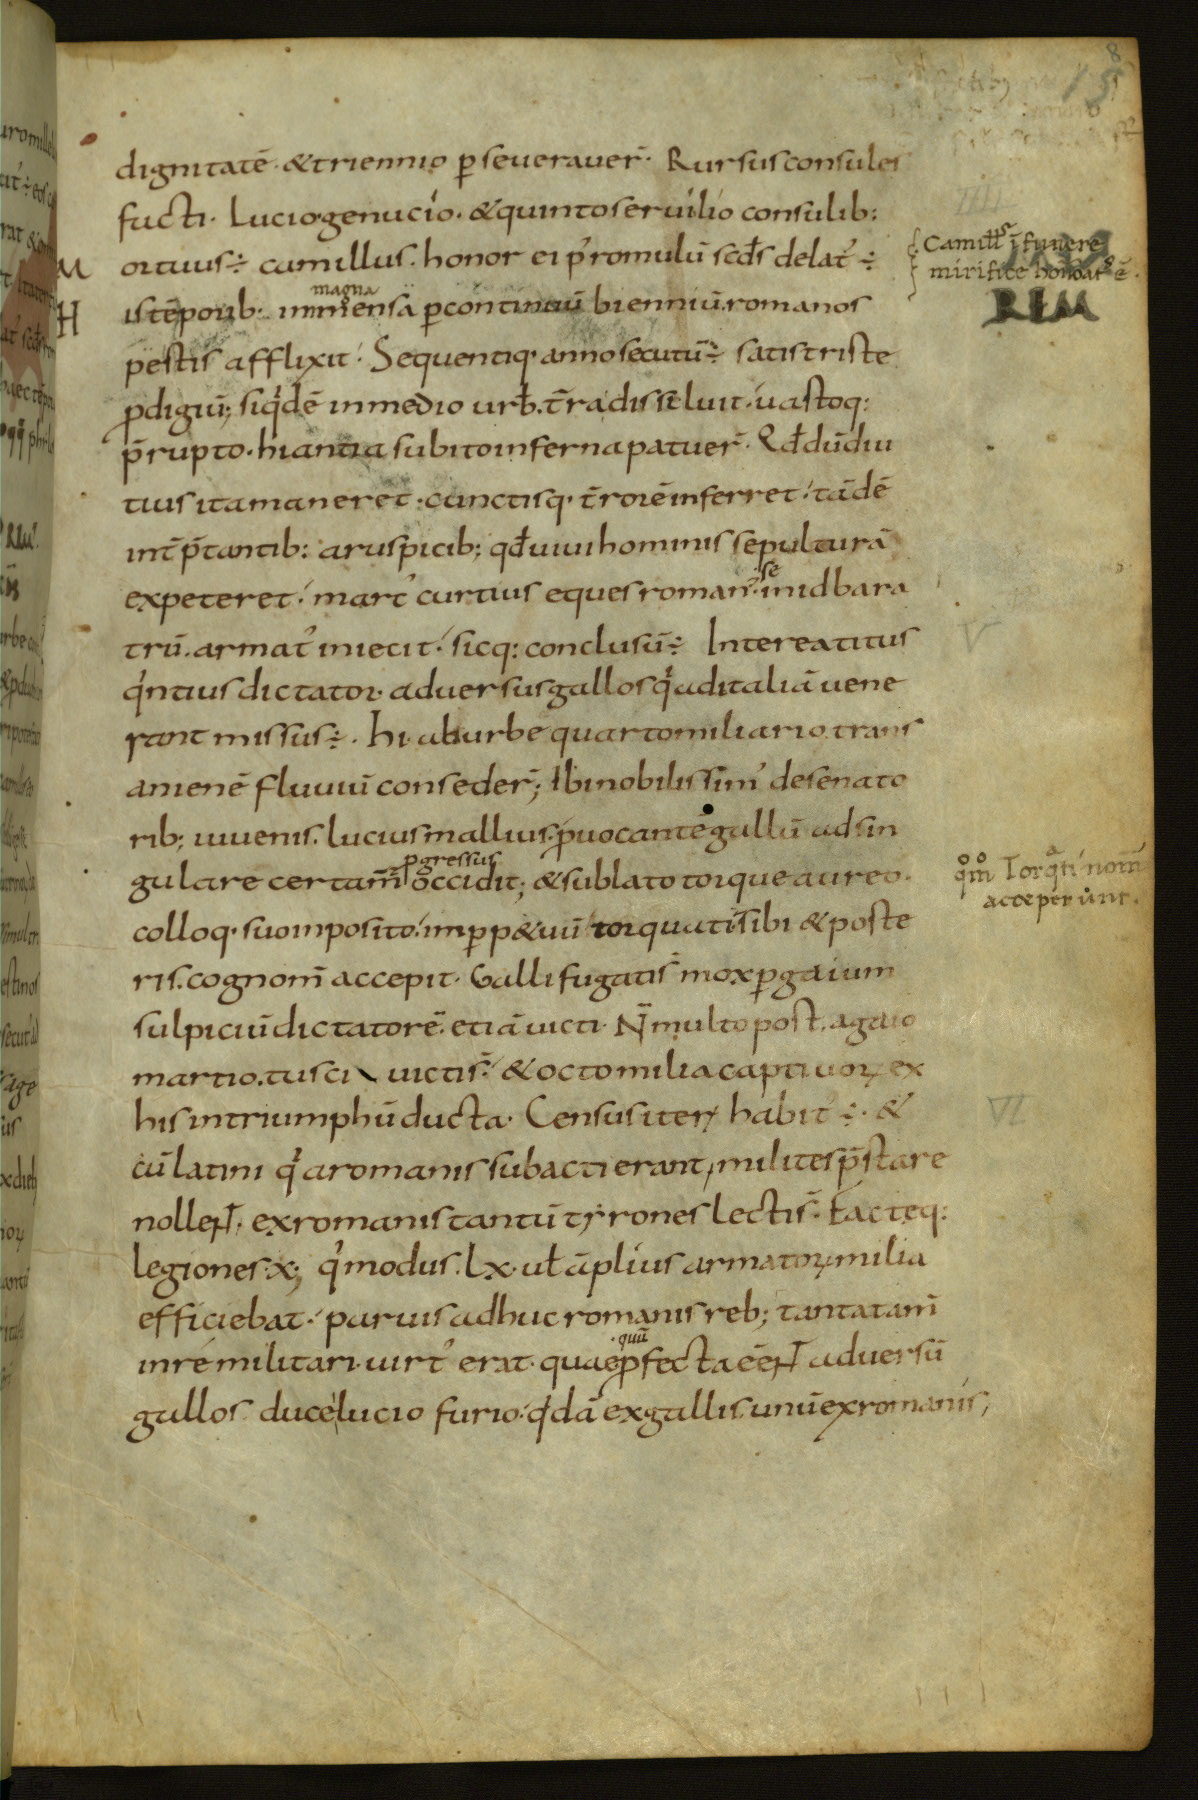 8
15
dignitatē · & triennio ꝑseverauer̄ · Rursus consules
facti · Lucio genucio · & quinto seruilio consulib:
M ortuus ÷ camillus · honor ei p᷒ romulū scd̄s delat᷒ ÷
Camill᷒s ī funere
mirifice honorat᷒ ē.
REM
H is tēporib· inmensa ꝑ continuū bienniū romanos
magna
pestis afflixit · Sequentiq· anno secutū ÷ satis triste
ꝓdigiū; siqͥdē in medio urb̄. t̄ra dissiluit · uastoq:
p̄rupto · hiantia subito inferna patuer̄ · Qd̄ dū diu
tius ita maneret · cunctisq· t̄rorē inferret · tādē
int̄p̄tantib: aruspicib; qd̄ uiui hominis sepulturā
expeteret · marc᷒ curtius eques roman᷒ · in id bara
sē
trū · armat᷒ iniecit · sicq: conclusū ÷ Interea titus
V
qͥntius dictator · aduersus gallos qͥ ad italiā uene
rant missus ÷ · hi ab urbe quarto miliario trans
anienē fluuiū conseder̄; Ibi nobilissim᷒ de senato
rib; iuuenis · Lucius mallius · ꝓuocantē gallū ad sin
gulare certam̄ occidit; & sublato torque aureo ·
ꝓgressus
qm̄ Torqͣti nom̄
acceperunt.
colloq· suo inposito · in ꝑp&uū torquati sibi & poste
ris · cognom̄ accepit · Galli fugatis̄ mox ꝑ gaium
sulpiciū dictatorē · etiā uicti · N̄ multo post · a gaio
martio · tusci uictis̄ · & octo milia captiuoꝝ ex
his in triumphū ducta · Census iteꝝ habit᷒ ÷ · &
VI
cū latini qͥ a romanis subacti erant, milites p̄stare
nollent · ex romanis tantū tyrones lectis̄ · Facteq:
legiones · x; qͥ modus · Lx · ul̄ āplius armatoꝝ milia
efficiebat · paruis adhuc romanis reb; tanta tam̄
in re militari · uirt᷒ erat · quae ꝓfecta eēnt aduersū
quū
gallos duce lucio furio · qͥdā ex gallis unū ex romanis,